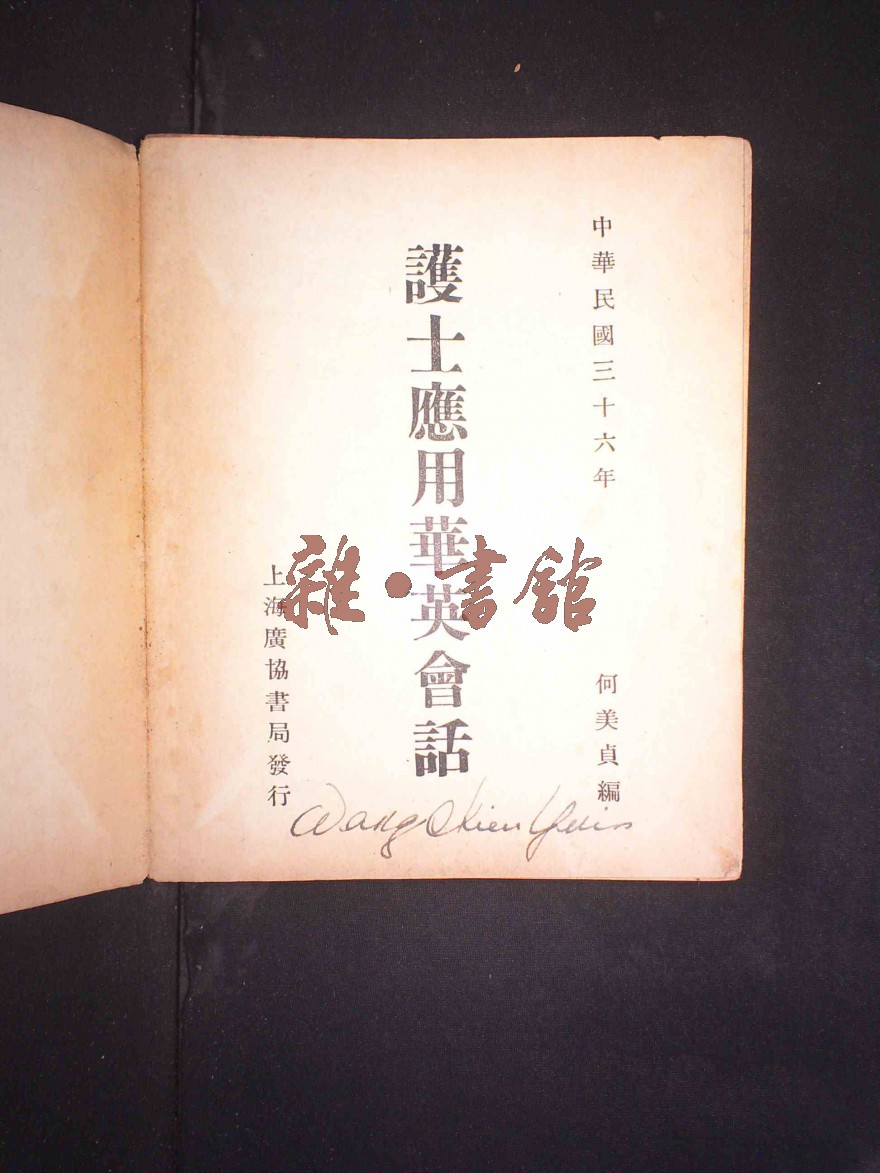 中華民國三十六年
何美貞編
護士應用華英會話
上海廣協書局發行
雜·書館
Wang